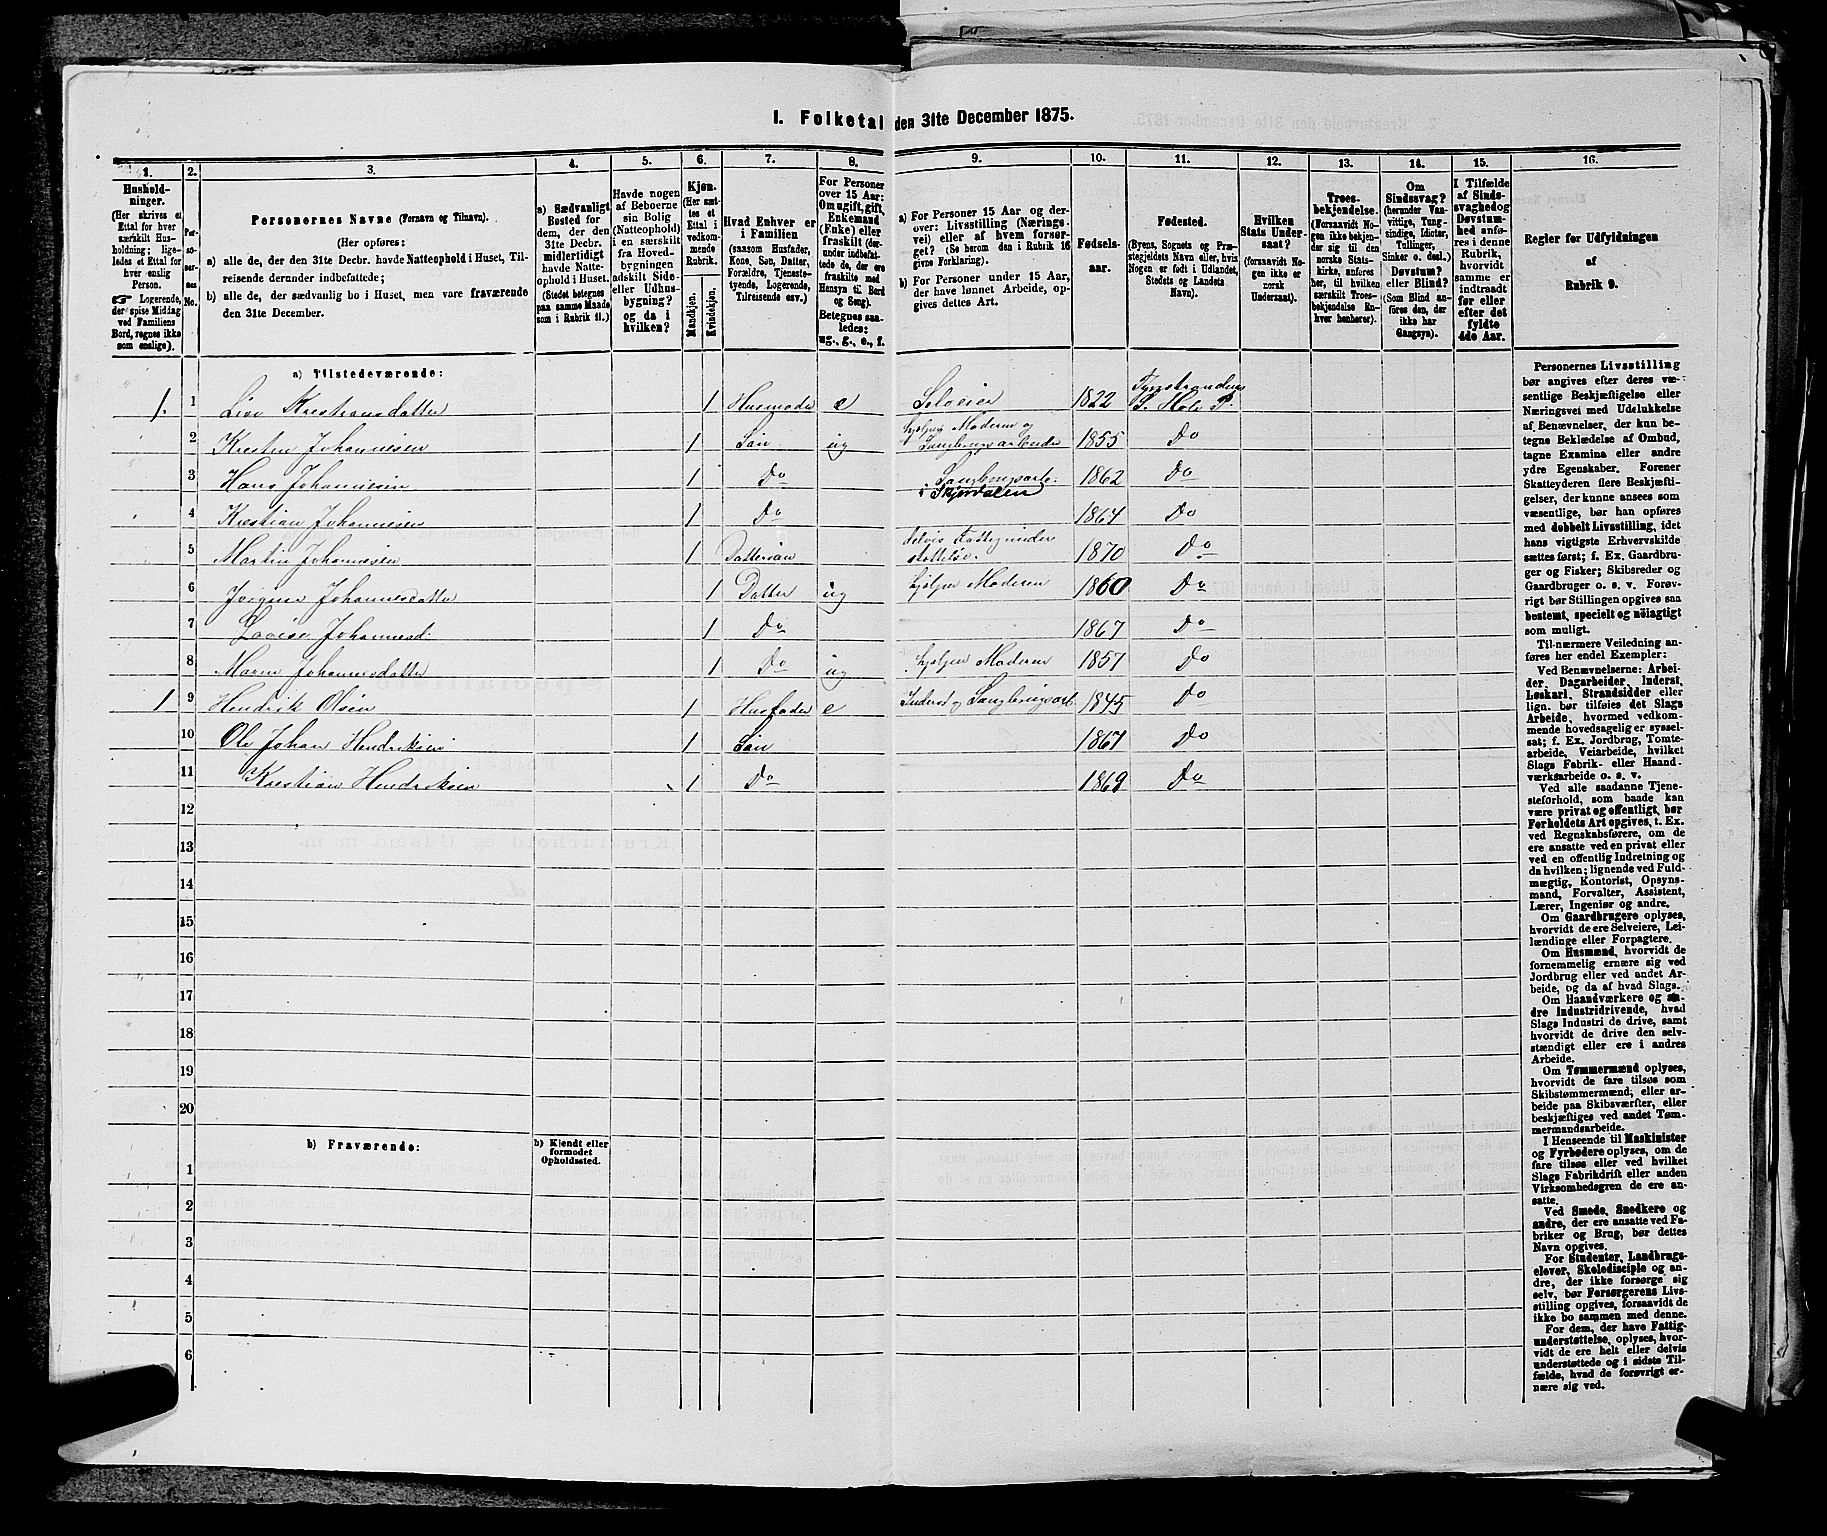 I. Folketal den 31te December 1875.
1. 2. 3. 4. 5. 6. 7. 8. 9. 10. 11. 12. 13. 14. 15. 16.
Hushold-
ninger.
(Her skrives et
Ettal for hver
særskilt Hus-
holdning; lige-
ledes et Ettal for
hver enslig
Person.
☛ Logerende,
der spise Middag
ved Familiens
Bord, regnes ikke
som enslige).
Per-
soner-
nes
No.
Personernes Navne (Fornavn og Tilnavn).
(Her opføres:
a) alle de, der den 31te Decbr. havde Natteophold i Huset, Til-
reisende derunder indbefattede;
b) alle de, der sædvanlig bo i Huset, men vare fraværende
den 31te December.
a) Sædvanligt
Bosted for
dem, der den
31te Decbr.
midlertidigt
havde Natte-
ophold i Huset.
(Stedet betegnes
paa samme Maade
som i Rubrik 11.)
Havde nogen
af Beboerne
sin Bolig
(Natteophold)
i en særskilt
fra Hoved-
bygningen
adskilt Side-
eller Udhus-
bygning?
og da i
hvilken?
Kjøn.
(Her sæt-
tes et
Ettal i
vedkom-
mende
Rubrik.
Mandkjøn.
Kvindekjøn.
Hvad Enhver er
i Familien
(saasom Husfader,
Kone, Søn, Datter,
Forældre, Tjeneste-
tyende, Logerende,
Tilreisende osv.)
For Personer
over 15 Aar:
Om ugift, gift,
Enkemand
(Enke) eller
fraskilt (der-
under indbefat-
tede de, der ere
fraskilte med
Hensyn til Bord
og Seng).
Betegnes saa-
ledes:
ug., g., e., f.
a) For Personer 15 Aar og der-
over: Livsstilling (Nærings-
vei) eller af hvem forsør-
get? (Se herom den i Rubrik 16
givne Forklaring).
b) For Personer under 15 Aar,
der have lønnet Arbeide, op-
gives dettes Art.
Fødsels-
aar.
Fødested.
(Byens, Sognets og Præ-
stegjeldets Navn eller, hvis
Nogen er født i Udlandet,
Stedets og Landets
Navn).
Hvilken
Stats Under-
saat?
(foraavidt No-
gen ikke er
norsk
Undersaat).
Troes-
bekjendelse.
(Foraavidt No-
gen ikke bekjen-
der sig til den
norske Stats-
kirke, anføres
her, til hvilken
særskilt Troes-
bekjendelse En-
hver henhører).
Om
Sindssvag?
(herunder Van-
vittige, Tung-
sindige, Idioter,
Tullinger,
Sinker o. desl.)
Døvstum?
eller Blind?
(Som Blind an-
føres den, der
ikke har
Gangsyn).
I Tilfælde
af Sinds-
svaghed og
Døvstum-
hed anfø-
res i denne
Rubrik,
hvorvidt
samme er
indtraadt
før eller
efter det
fyldte
4de Aar.
Regler for Udfyldningen
af
Rubrik 9.
a) Tilstedeværende:
1. 1 Live Kristiansdatter 1 Husmoder e Selveier 1822 Tyristrandens S. Hole P.
2 Kresten Johannesen 1 Søn ug hjælper Moderen og Saugbrugsarbeide 1855 Do
3 Hans Johannesen 1 Do Saugbrugsarb. i Skjærdalen 1862 Do
4 Kristian Johannesen 1 Do 1864 Do
5 Martin Johannesen 1 Dattersøn delvis Fattigunder støttelse. 1870 Do
6 Jørgine Johannesdatter 1 Datter ug hjælper Moderen 1860 Do
7 Lovise Johannesd. 1 Do 1867 Do
8 Maren Johannesdatter 1 Do ug hjælper Moderen 1857 Do
1 9 Hendrik Olsen 1 Husfader e Inderst og Saugbrugsarb. 1845 Do
10 Ole Johan Hendriksen 1 Søn 1867 Do
11 Kristian Hendriksen 1 Do 1869 Do
12
13
14
15
16
17
18
19
20
b) Fraværende:
b) Kjendt eller
formodet
Opholdssted.
1
2
3
4
5
6
Personernes Livsstilling
bør angives efter deres væ-
sentlige Beskjæftigelse eller
Næringsvei med Udelukkelse
af Benævnelser, der kun be-
tegne Beklædelse af Ombud,
tagne Examina eller andre
ydre Egenskaber. Forener
Skatteyderen flere Beskjæfti-
gelser, der kunne ansees som
væsentlige, bør han opføres
med dobbelt Livsstilling, idet
hans vigtigste Erhvervskilde
sættes først; f. Ex. Gaardbru-
ger og Fisker; Skibsreder og
Gaardbruger o. s. v. Forøv-
rigt bør Stillingen opgives saa
bestemt, specielt og nøiagtigt
som muligt.
Til nærmere Veiledning an-
føres her endel Exempler:
Ved Benævnelserne: Arbei-
der, Dagarbeider, Inderst,
Løskarl, Strandsidder eller
lign. bør tilføies det Slags
Arbeide, hvormed vedkom-
mende hovedsagelig er syssel-
sat; f. Ex. Jordbrug, Tomte-
arbeide, Veiarbeide, hvilket
Slags Fabrik- eller Haand-
værksarbeide o. s. v.
Ved alle saadanne Tjene-
steforhold, som baade kan
være privat og offentligt, bør
Forholdets Art opgives, t. Ex.
ved Regnskabsførere, om de
ere ansatte ved en privat eller
ved en offentlig Indretning og
da hvilken; lignende ved Fuld-
mægtig, Kontorist, Opsyns-
mand, Forvalter, Assistent,
Lærer, Ingeniør og andre.
Om Gaardbrugere oplyses,
hvorvidt de ere Selveiere, Lei-
lændinge eller Forpagtere.
Om Husmænd, hvorvidt de
fornemmelig ernære sig ved
Jordbrug eller ved andet Ar-
beide, og da af hvad Slags.
Om Haandværkere og an-
dre Industridrivende, hvad
Slags Industri de drive, samt
hvorvidt de drive den selv-
stændigt eller ere i andres
Arbeide.
Om Tømmermænd oplyses,
hvorvidt de fare tilsøs som
Skibstømmermænd, eller ar-
beide paa Skibsværfter, eller
beskjæftiges ved andet Tøm-
mermandsarbeide.
I Henseende til Maskinister
og Fyrbødere oplyses, om de
fare tilsøs eller ved hvilket
Slags Fabrikdrift eller anden
Virksomhedsgren de ere an-
satte.
Ved Smede, Snedkere og
andre, der ere ansatte ved Fa-
briker og Brug, bør dettes
Navn opgives.
For Studenter, Landbrugs-
elever, Skoledisciple og an-
dre, der ikke forsørge sig
selv, bør Forsørgerens Livs-
stilling opgives, forsaavidt de
ikke bo sammen med denne.
For dem, der have Fattig-
understøttelse, oplyses, hvor-
vidt de ere helt eller delvis
understøttede og i sidste Til-
fælde, hvad de forøvrigt er-
nære sig ved.